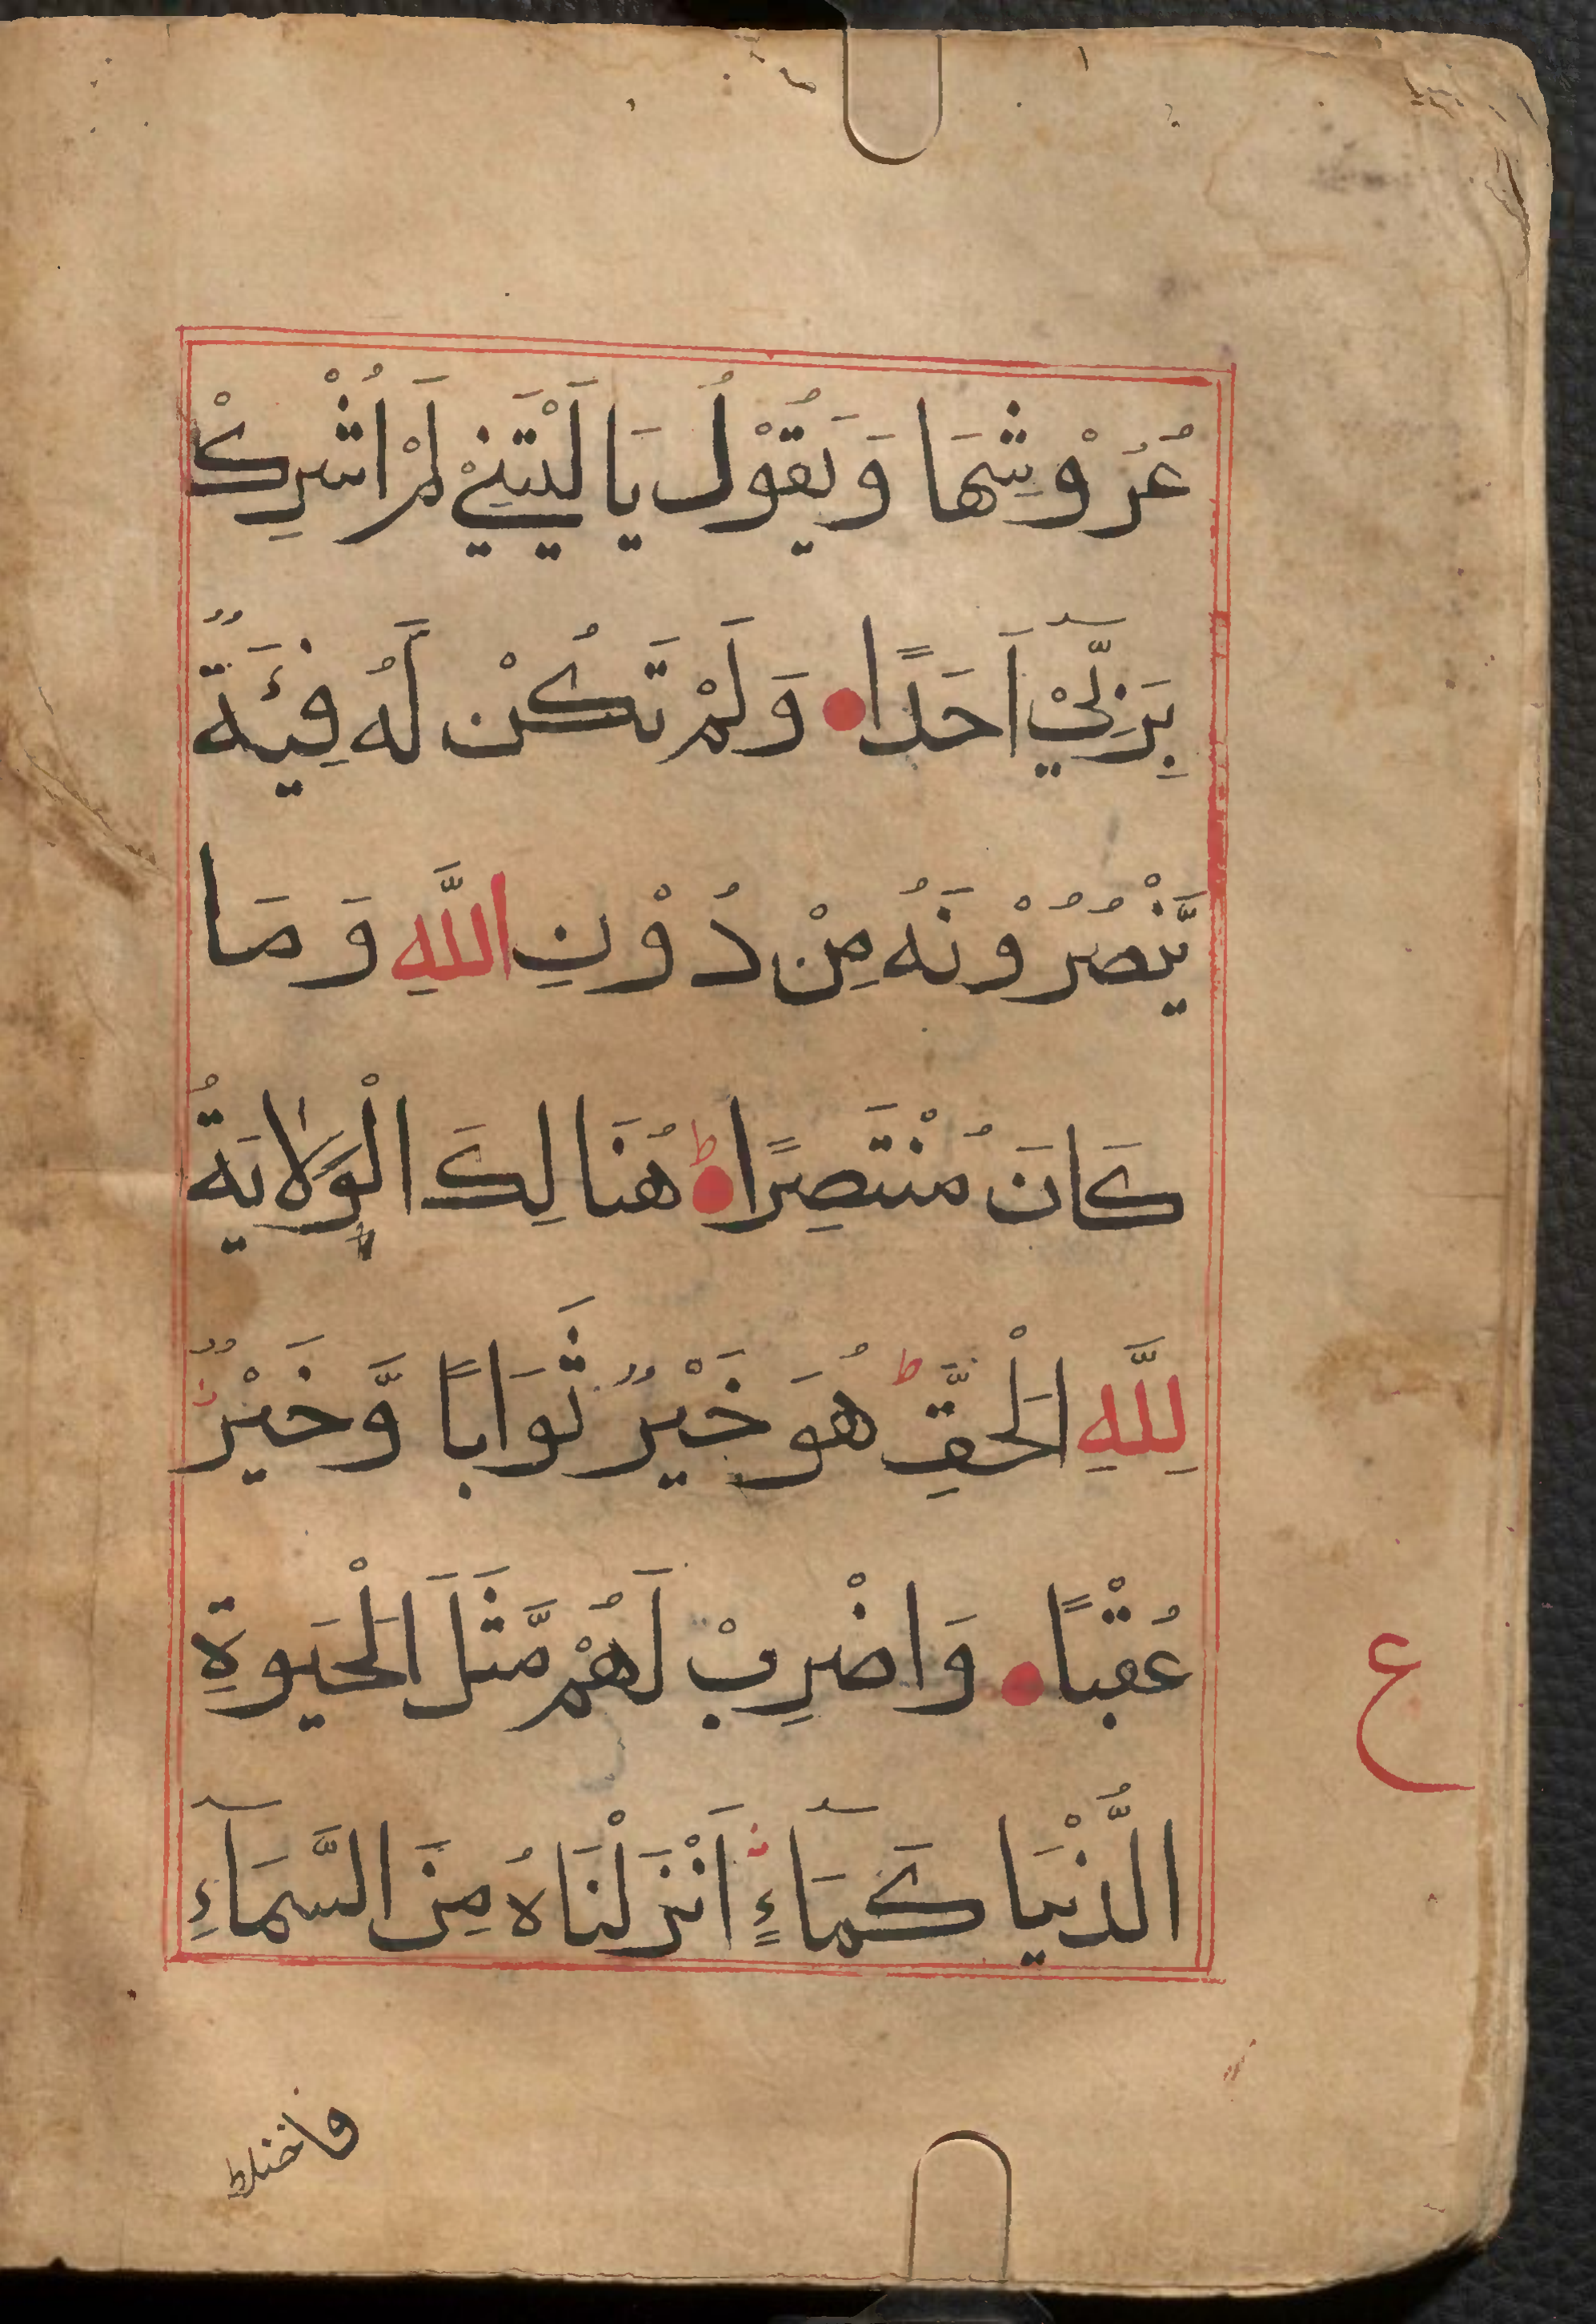 عُرُوْشِهَا وَيَقُوْلُ يَا لَيْتَنِيْ لَمْ اُشْرِكْ
بِرَبِّيْٓ اَحَدًا وَلَمْ تَكُنْ لَهُ فِيئَةٌ
يَّنْصُرُوْنَهُ مِنْ دُوْنِ اللَّهِ وَمَا
كَانَ مُنْتَصِرًا ط هُنَا لِكَ الْوَلَايَةُ
لِلَّهِ الْحَقِّ ط هُوَ خَيْرٌ ثَوَابًا وَّخَيْرٌ
عُقْبًا وَاضْرِبْ لَهُمْ مَّثَلَ الْحَيَوةِ
الدُّنْيَا كَمَآءٍ اَنْزَلْنَاهُ مِنَ السَّمَآءِ
ع
فاختلط